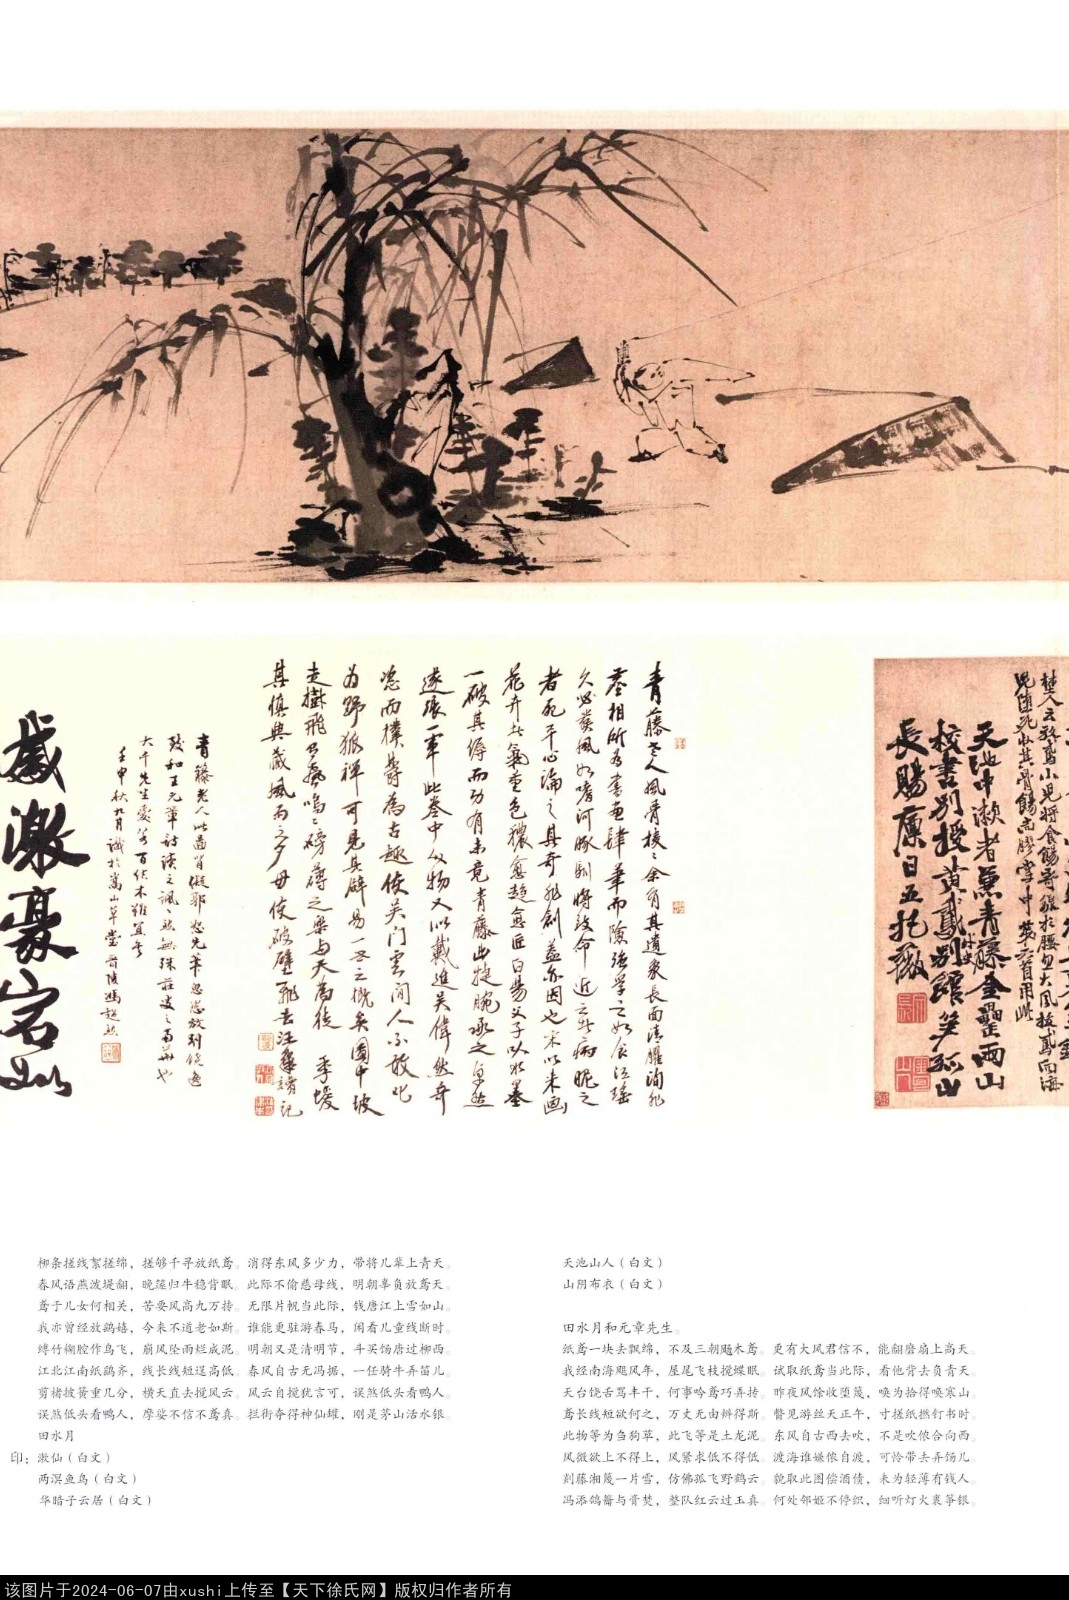 天池中漱者兼青藤金罍兩山
長賜
青藤老人風骨棱棱余有其遺象長面清臞洵非
塵相所為書畫肆筆而險強學之如食江瑤
久必發風如嗜河豚將致命近之者病昵之
者死平心論之其奇非創益亦因也宋以來画
花卉者氣重色穠愈趨愈匠白陽父子以水墨
一破其傳而功有未竟青藤出捷腕承之卓然
遂張一軍此卷中人物又似戴進吳偉然奇
恣而樸欝為古趣使吴门雲間人不敢叱
为野狐禪可見其辟易一世之概矣圖中坡
走樹飛磅礴之樂与天為徒 季媛
其慎典藏風雨之夕毋使破壁飛去 記
青藤老人此圖肖儗郭恕先筆
致和王元章詩讀之渢渢然無殊莊叟之南華也
大千先生愛
壬申秋九月識於嵩山草堂晉陵馮超然
豪宕如
柳条搓线絮搓绵，搓够千寻放纸鸢。消得东风多少力，带将儿辈上青天。
春风语燕泼堤翻，晚笛归牛稳背眠。此际不偷慈母线，明朝辜负放鸢天。
鸢于儿女何相关，苦要风高九万抟。无限片帆当此际，钱唐江上雪如山。
我亦曾经放鹞嬉，今来不道老如斯。谁能更驻游春马，闲看儿童线断时。
缚竹糊腔作鸟飞，崩风坠雨烂成泥。明朝又是清明节，斗买饧唐过柳西。
江北江南纸鹞齐，线长线短迭高低。春风自古无冯据，一任骑牛弄笛儿。
剪楮披簧重几分，横天直去搅风云。风云自搅犹言可，误煞低头看鸭人。
误煞低头看鸭人，摩娑不信不鸢真。拦街夺得神仙罐，刚是茅山活水银。
田水月
印：漱仙（白文）
两溟鱼鸟（白文）
华暗子云居（白文）
天池山人（白文）
山阴布衣（白文）
田水月和元章先生。
纸鸢一块去飘绵，不及三朝飏木鸢。更有大风君信不，能翻磨扇上高天。
我经南海飓风年，屋尾飞枝搅蝶眠。试取纸鸢当此际，看他背去负青天。
天台饶舌骂丰干，何事吟鸢巧弄抟。昨夜风馀收堕篾，唤为拾得唤寒山。
鸢长线短欲何之，万丈无由辨得斯。瞥见游丝天正午，寸搓纸撚钉书时。
此物等为刍狗草，此飞等是土龙泥。东风自古西去吹，不是吹侬合向西。
风微欲上不得上，风紧求低不得低。渡海谁嫌侬自渡，可怜带去弄饧儿。
剡藤湘篾一片雪，仿佛孤飞野鹤云。貌取此图偿酒债，未为轻薄有钱人。
冯添鸽籥与膏焚，整队红云过玉真。何处邻姬不停织，细听灯火裹筝银。
该图片于2024-06-07由xushi上传至【天下徐氏网】版权归作者所有